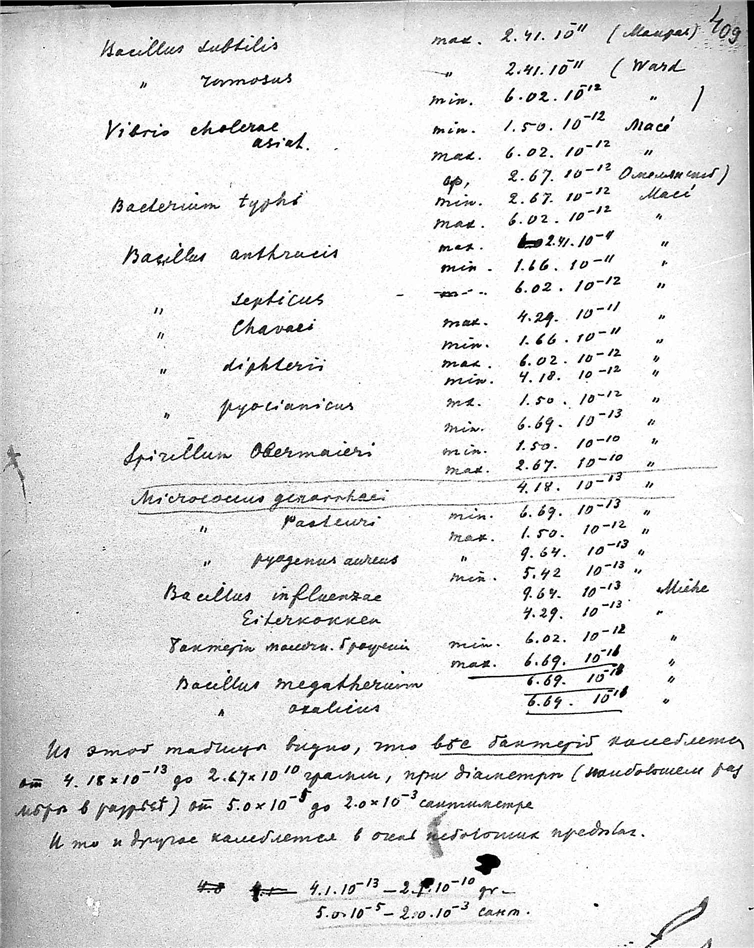 409
Bacillus subtilis max. 2.41. 10⁻¹¹ (Маупас)
" ramosus " 2.41. 10⁻¹¹ (Ward
min. 6.02. 10⁻¹² " )
Vibrio cholerae min. 1.50. 10⁻¹² Macé
asiat. max. 6.02. 10⁻¹² "
ср, 2.67. 10⁻¹² Омелянский)
Bacterium typhi min. 2.67. 10⁻¹² Macé
max. 6.02. 10⁻¹² "
Bacillus anthracis max. 2.41. 10⁻¹¹ "
min. 1.66. 10⁻¹¹ "
" septicus - 6.02. 10⁻¹² "
" Chavaei max. 4.29. 10⁻¹¹ "
min. 1.66. 10⁻¹¹ "
" diphterii max. 6.02. 10⁻¹² "
min. 4.18. 10⁻¹² "
" pyocianicus max. 1.50. 10⁻¹² "
min. 6.69. 10⁻¹³ "
Spirillum Obermaieri min. 1.50. 10⁻¹⁰ "
max. 2.67. 10⁻¹⁰ "
Micrococcus gonorrhaei 4.18. 10⁻¹³ "
" Pasteuri min. 6.69. 10⁻¹³ "
max. 1.50. 10⁻¹² "
" pyogenus aureus " 9.64. 10⁻¹³ "
min. 5.42 10⁻¹³ "
Bacillus influenzae 9.64. 10⁻¹³ Miehe
Eiterkokken 4.29. 10⁻¹³ "
Бактерiи маслян. брожения min. 6.02. 10⁻¹² "
max. 6.69. "
Bacillus megatherium 6.69. "
" oxalicus 6.69. "
Из этой таблицы видно, что вѣс бактерiй колеблется
от 4.18×10⁻¹³ до 2.67×10¹⁰ грамм, при дiаметрѣ (наибольшем раз
мѣрѣ в разрѣзѣ) от 5.0×10⁻⁵ до 2.0×10⁻³ сантиметра
И то и другое колеблется в очень небольших пределах.
4.1.10⁻¹³ — 2.7.10⁻¹⁰ gr —
5.0.10⁻⁵ — 2.0.10⁻³ сант.